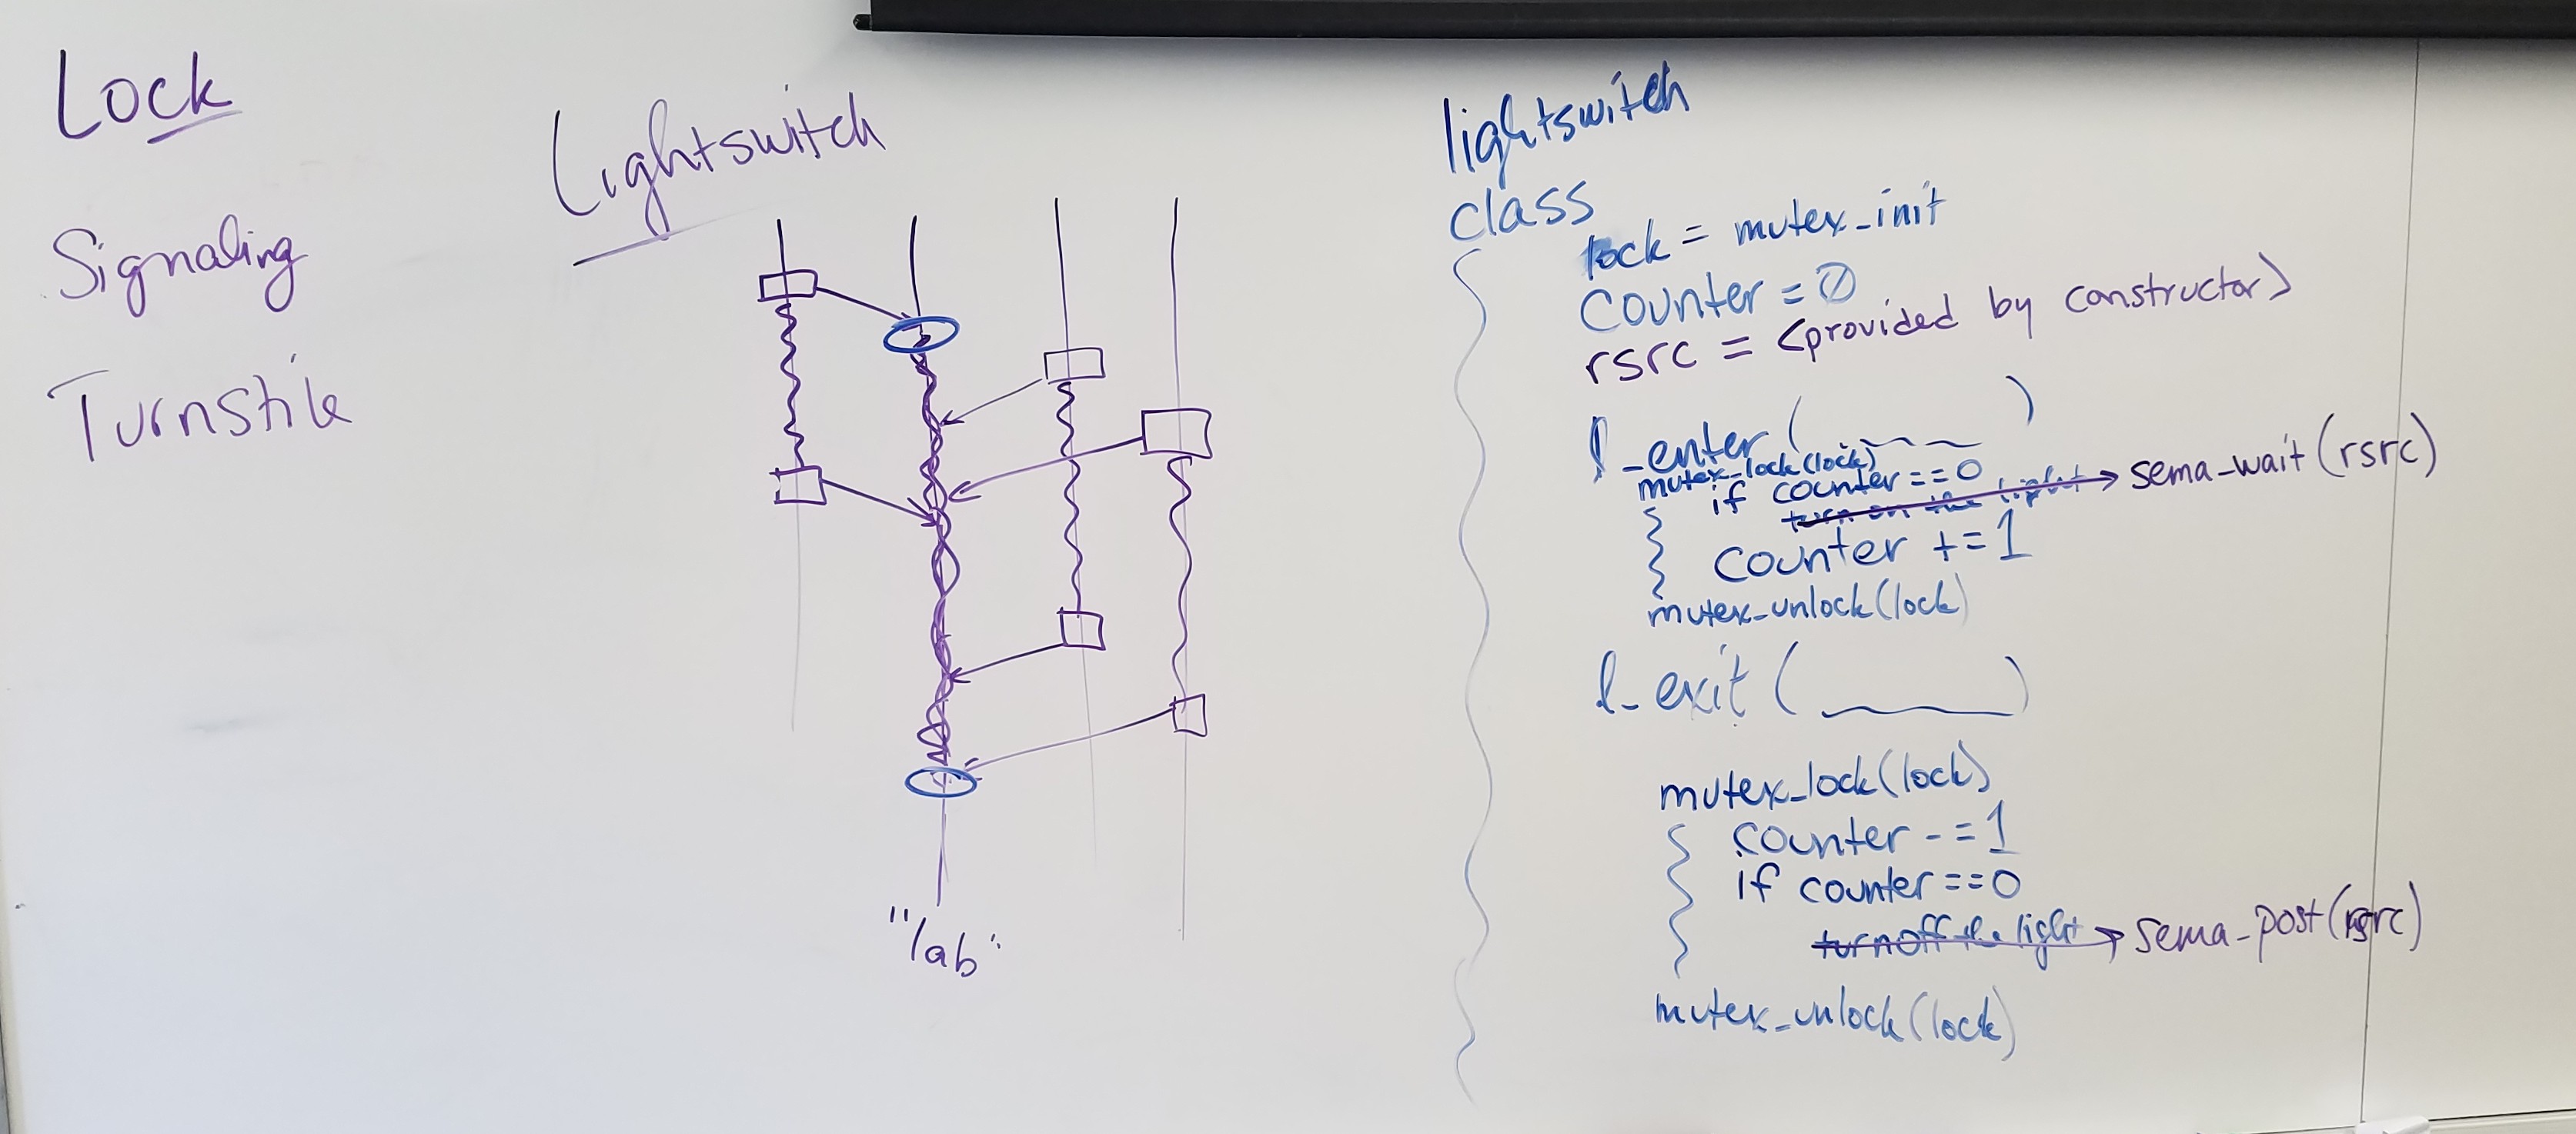 Lock
Signaling
Turnstile
Lightswitch
"lab"
lightswitch
class
lock = mutex_init
Counter = 0
rsrc = <provided by constructor>
l_enter (____)
mutex_lock(lock)
if counter == 0
turn on the light → sema_wait(rsrc)
Counter += 1
mutex_unlock(lock)
l_exit (____)
mutex_lock(lock)
counter -= 1
if counter == 0
turn off the light → sema_post(rsrc)
mutex_unlock(lock)